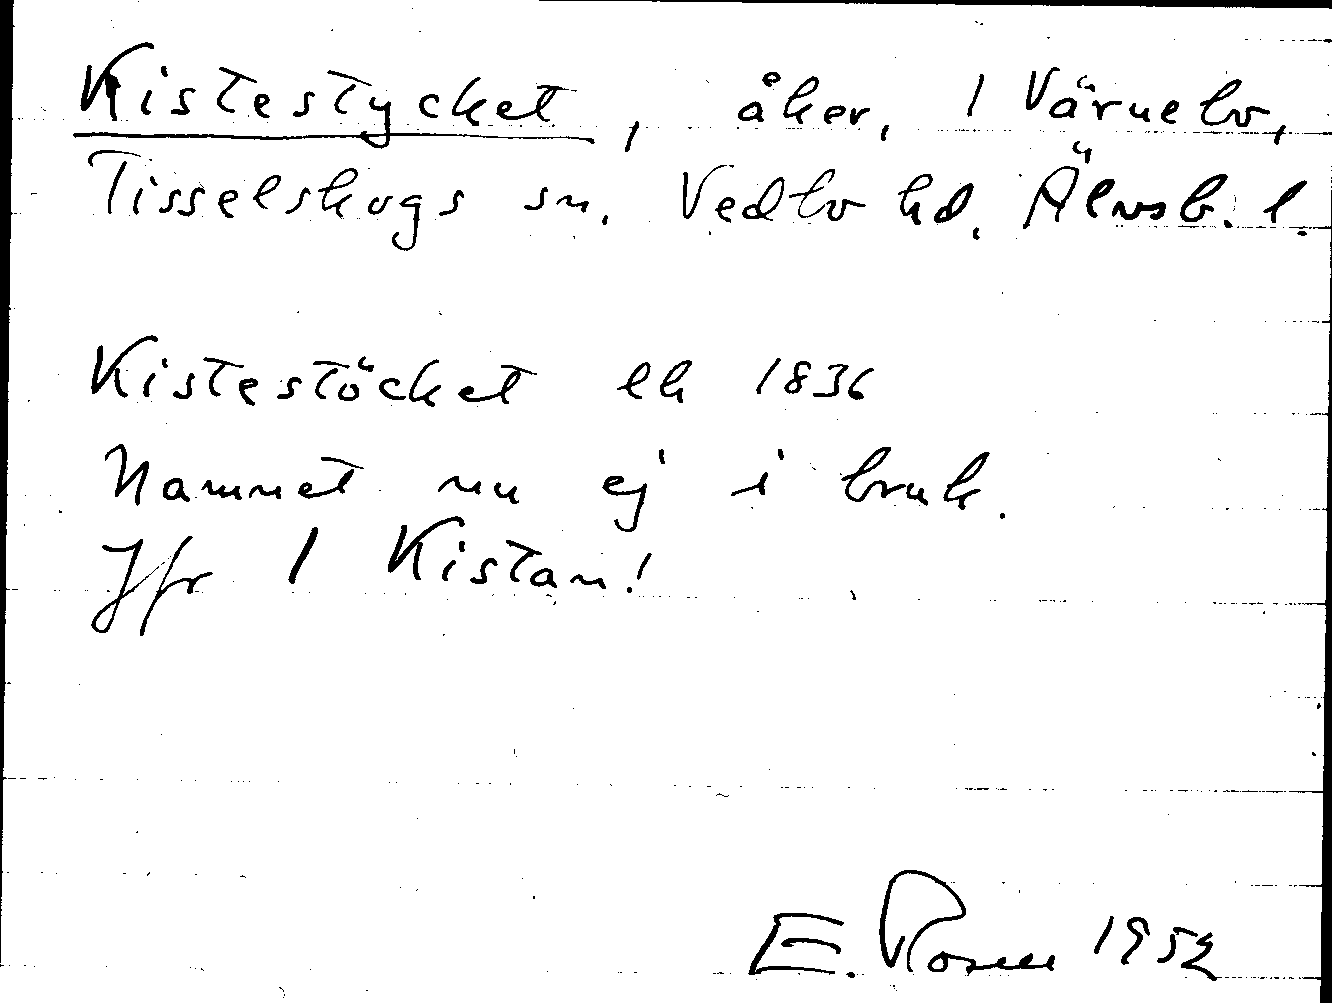 Kistestycket, åker, 1 Väruebo,
Tisselskogs sn. Vedbo hd. Älvsb. l.
Kistestöcket lh 1836
Namnet nu ej i bruk.
Jfr 1 Kistan!
E. Rosell 1952